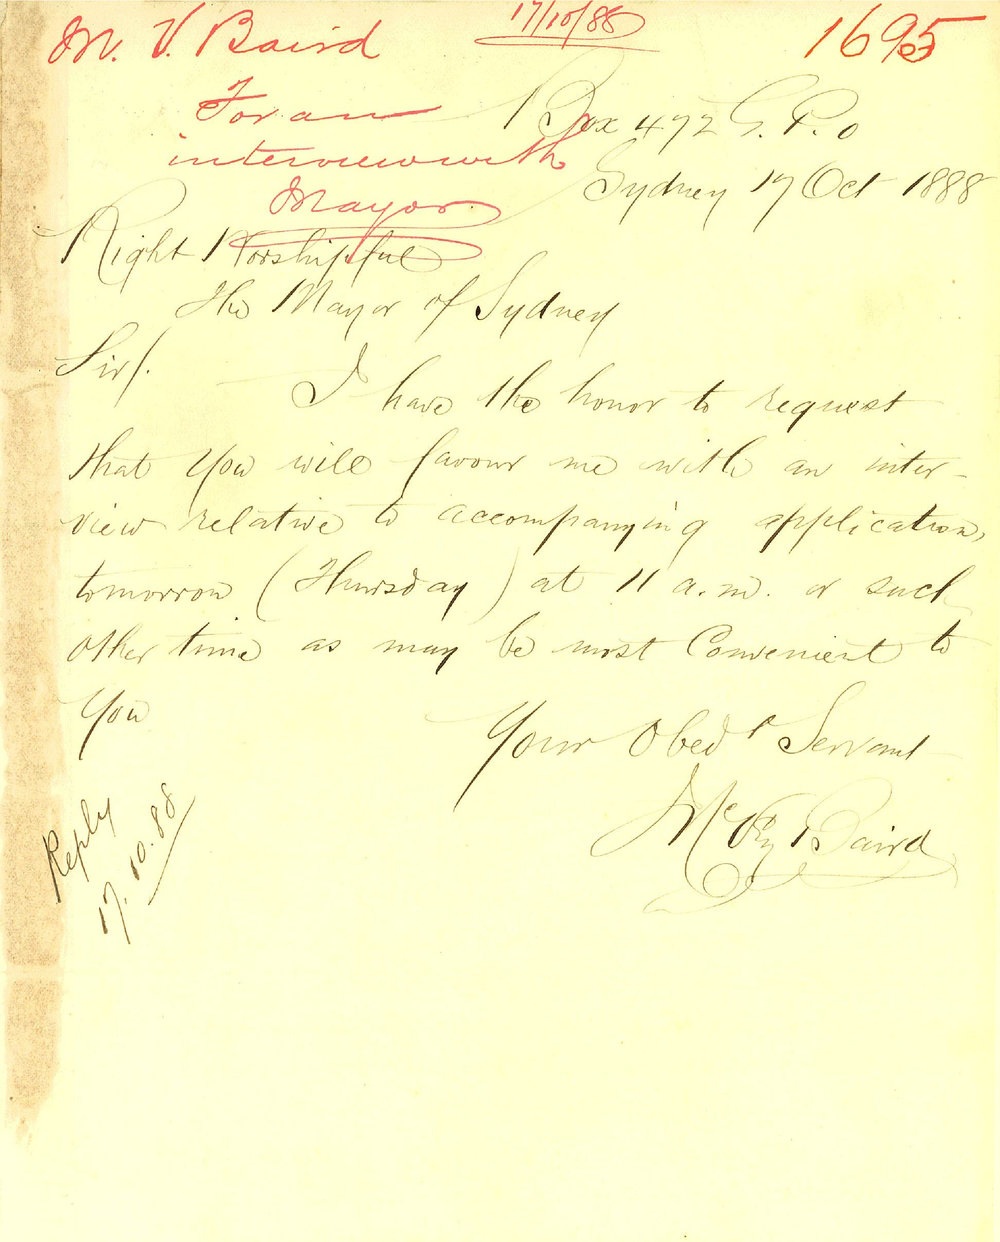 M. V. Baird
17/10/88
1695
For an
interview with
Mayor
Box 472 G. P. O
Sydney 17 Oct 1888
Right Worshipful
The Mayor of Sydney
Sir/.
I have the honor to request
that you will favour me with an inter-
view relative to accompanying application,
tomorrow (Thursday) at 11 a.m. or such
other time as may be most Convenient to
you
Your Obedt Servant
Baird
Reply
17.10.88